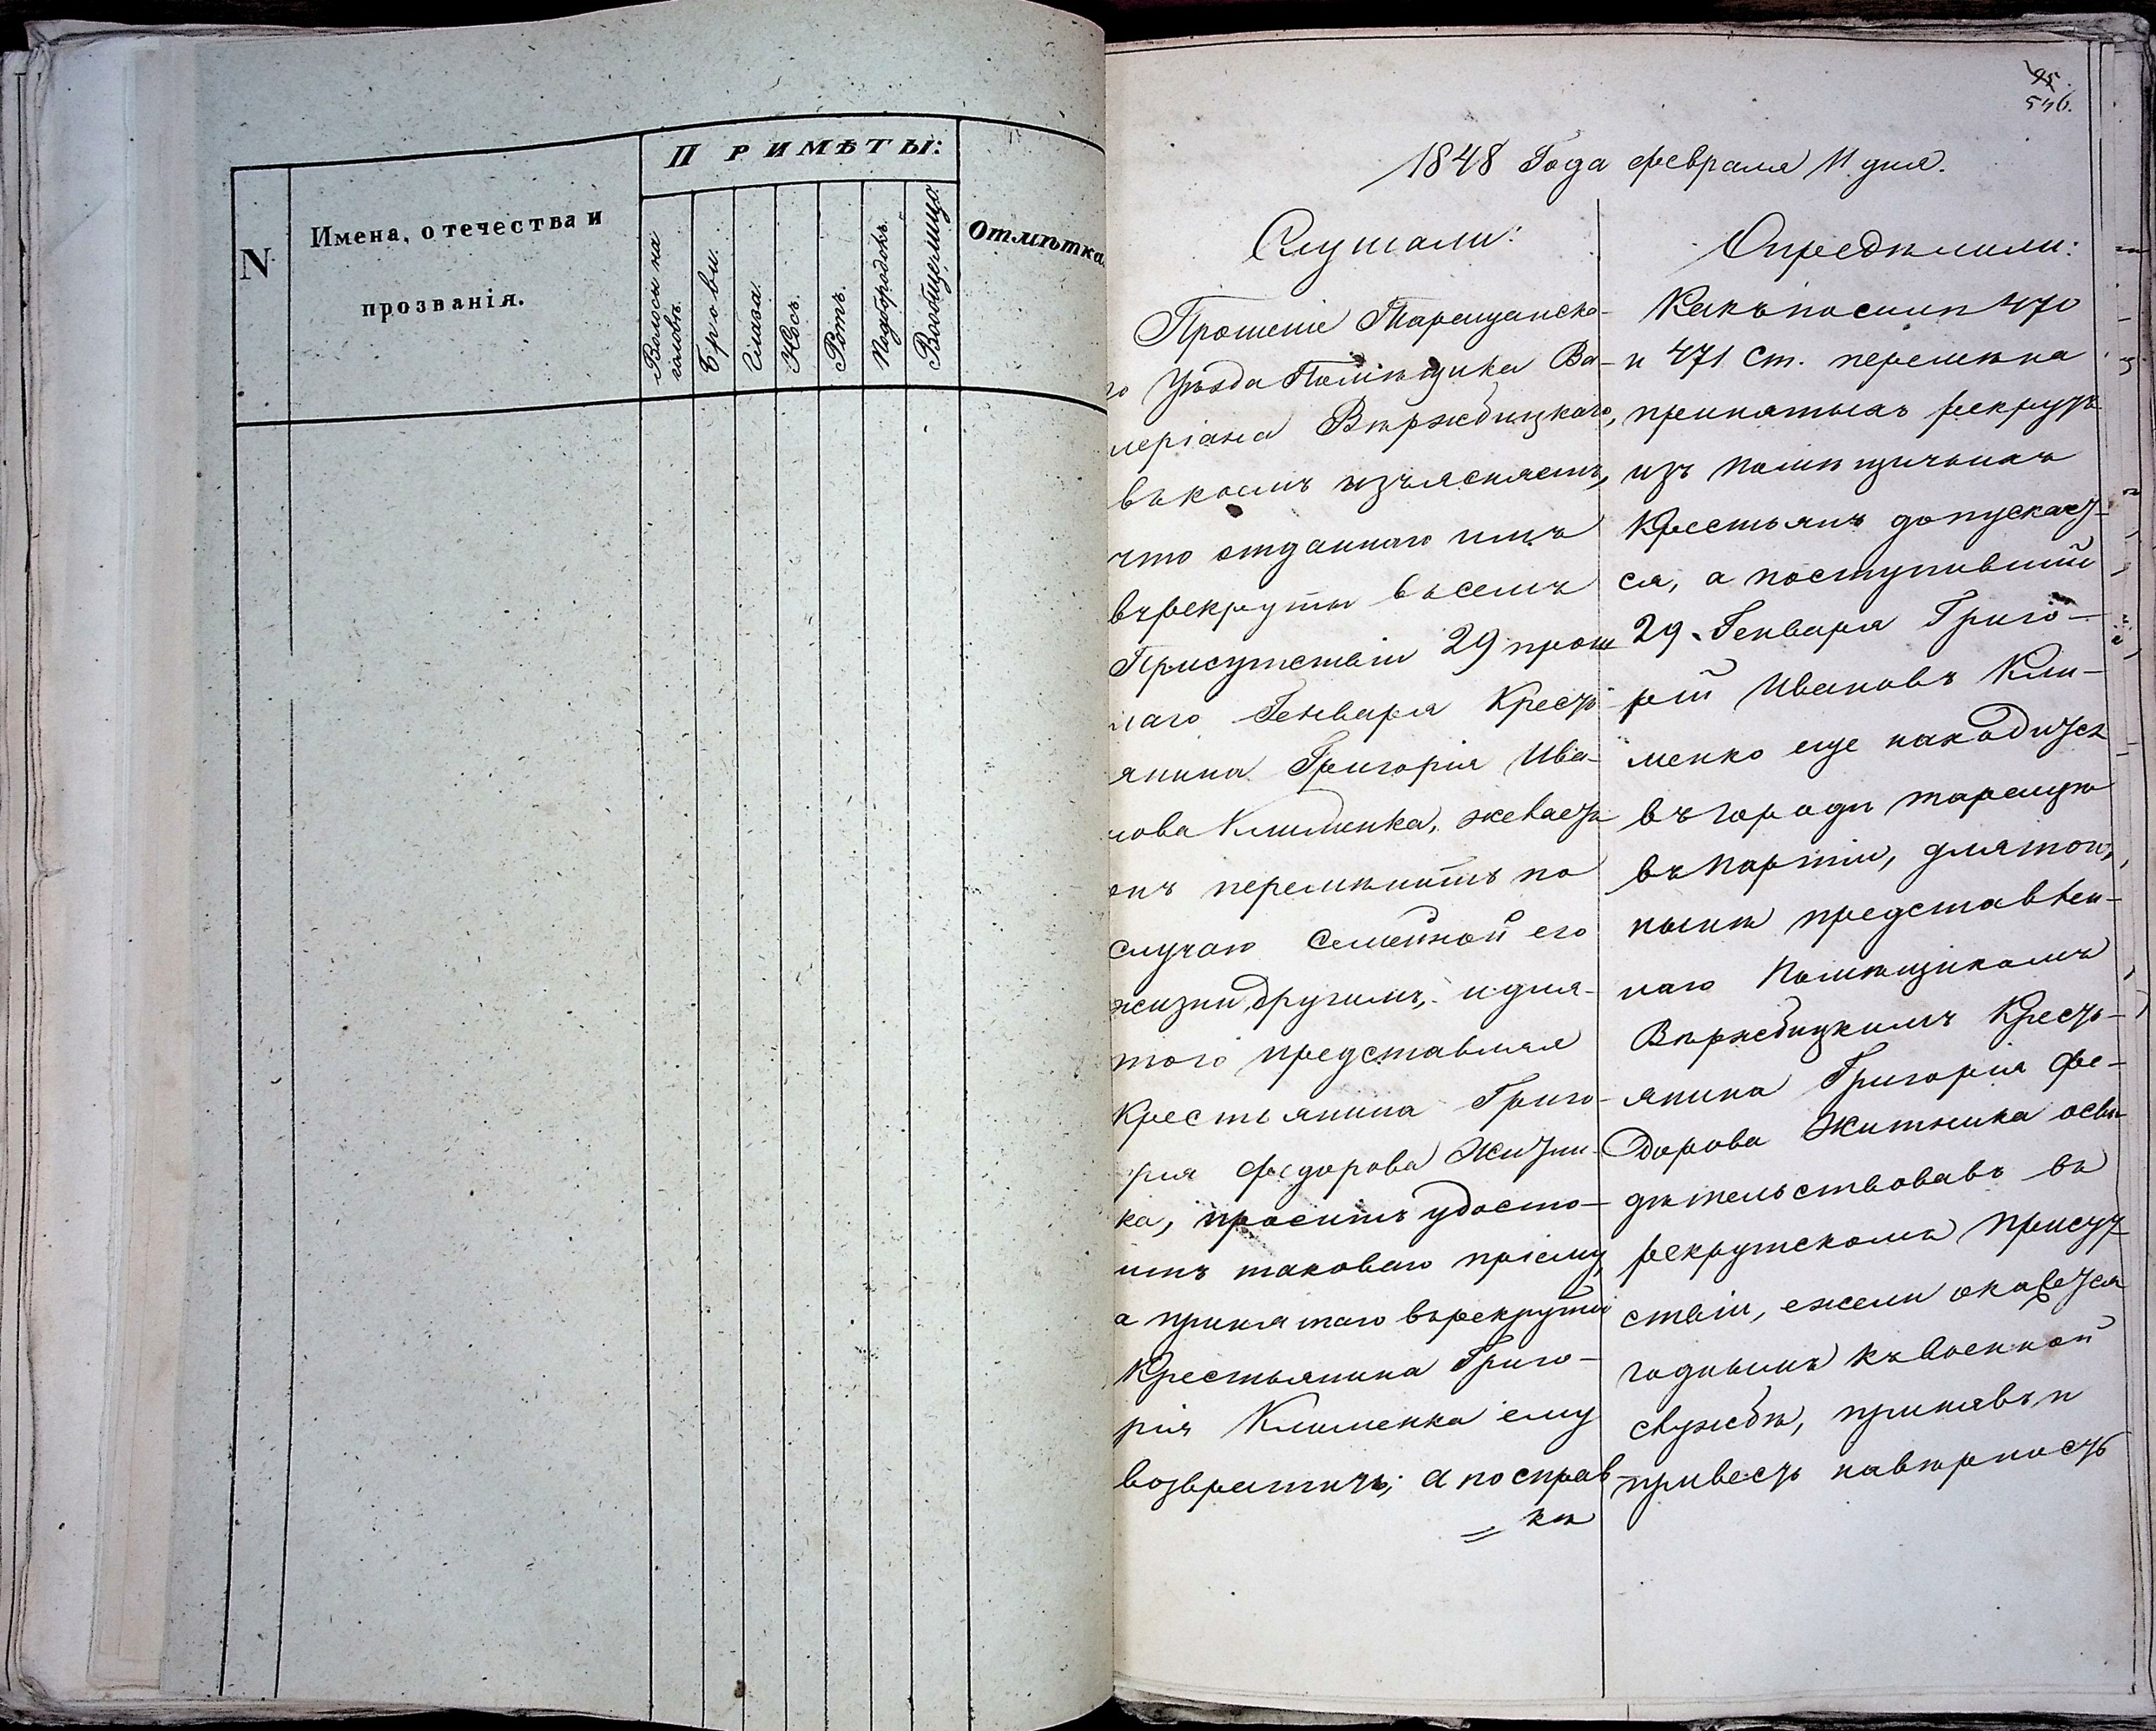 N
Имена, отечества и
прозванія.
ПРИМѢТЫ:
Волосы на
головѣ.
Брови.
Глаза.
Носъ.
Ротъ.
Подбородокъ.
Вообще лицо.
Отмѣтка
546.
1848 Года февраля 11 дня.
Слушали:
Прошеніе Таращанска-
го Уѣзда Помѣщика Ва-
леріана Вѣржбицкаго,
въ коемъ изъясняетъ,
что отданнаго имъ
въ рекруты въ семъ
Присутствіи 29 прош
лаго Генваря Кресть
янина Григорія Ива-
нова Клименка, желаетъ
онъ перемѣнить по
случаю Семейной его
жизни другимъ, и для
того представляя
Крестьянина Григо-
рія Федорова Житни-
ка, проситъ удосто-
ить таковаго пріему,
а принятаго въ рекруты
Крестьянина Григо-
рія Клименка ему
возвратить; а по справ
кѣ
Опредѣлили:
Какъ по силѣ 470
и 471 Ст. перемѣна
принятыхъ рекрутъ
изъ помѣщичьихъ
Крестьянъ допускает-
ся, а поступившій
29. Генваря Григо-
рій Ивановъ Кли-
менко еще находится
въ городѣ таращѣ
въ партіи, для того,
нынѣ представлен-
наго Помѣщикомъ
Вѣржбицкимъ Кресть-
янина Григорія Фе-
дорова Житника осви
дѣтельствовавъ въ
рекрутскомъ Присут
ствіи, ежели окажется
годнымъ къ военной
службѣ, принявъ и
привесть на вѣрность